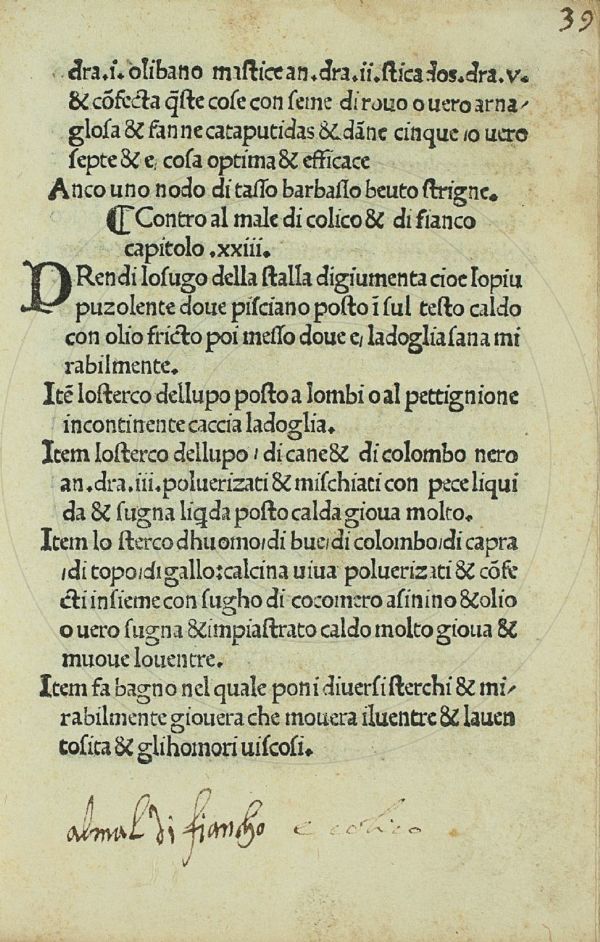 39
dra.i. olibano mastice an.dra.ii.sticados.dra.v.
& cõfecta q̃ste cose con seme di rouo o uero arna/
glosa & fanne cataputidas & dãne cinque /o uero
septe & e/ cosa optima & efficace
Anco uno nodo di tasso barbasso beuto strigne.
¶ Contro al male di colico & di fianco
capitolo .xxiii.
PRendi losugo della stalla digiumenta cioe lopiu
puzolente doue pisciano posto ĩ sul testo caldo
con olio fricto poi messo doue e/ ladoglia sana mi
rabilmente.
Itẽ losterco dellupo posto a lombi o al pettignione
incontinente caccia ladoglia.
Item losterco dellupo / di cane & di colombo nero
an.dra.iii.poluerizati & mischiati con pece liqui
da & sugna liq̃da posto calda gioua molto.
Item lo sterco dhuomo/di bue/di colombo/di capra
/di topo/di gallo:calcina uiua poluerizati & cõfe
cti insieme con sugho di cocomero asinino & olio
o uero sugna & impiastrato caldo molto gioua &
muoue louentre.
Item fa bagno nel quale poni diuersi sterchi & mi/
rabilmente giouera che mouera iluentre & lauen
tosita & glihomori uiscosi.
almal di fiancho e colico